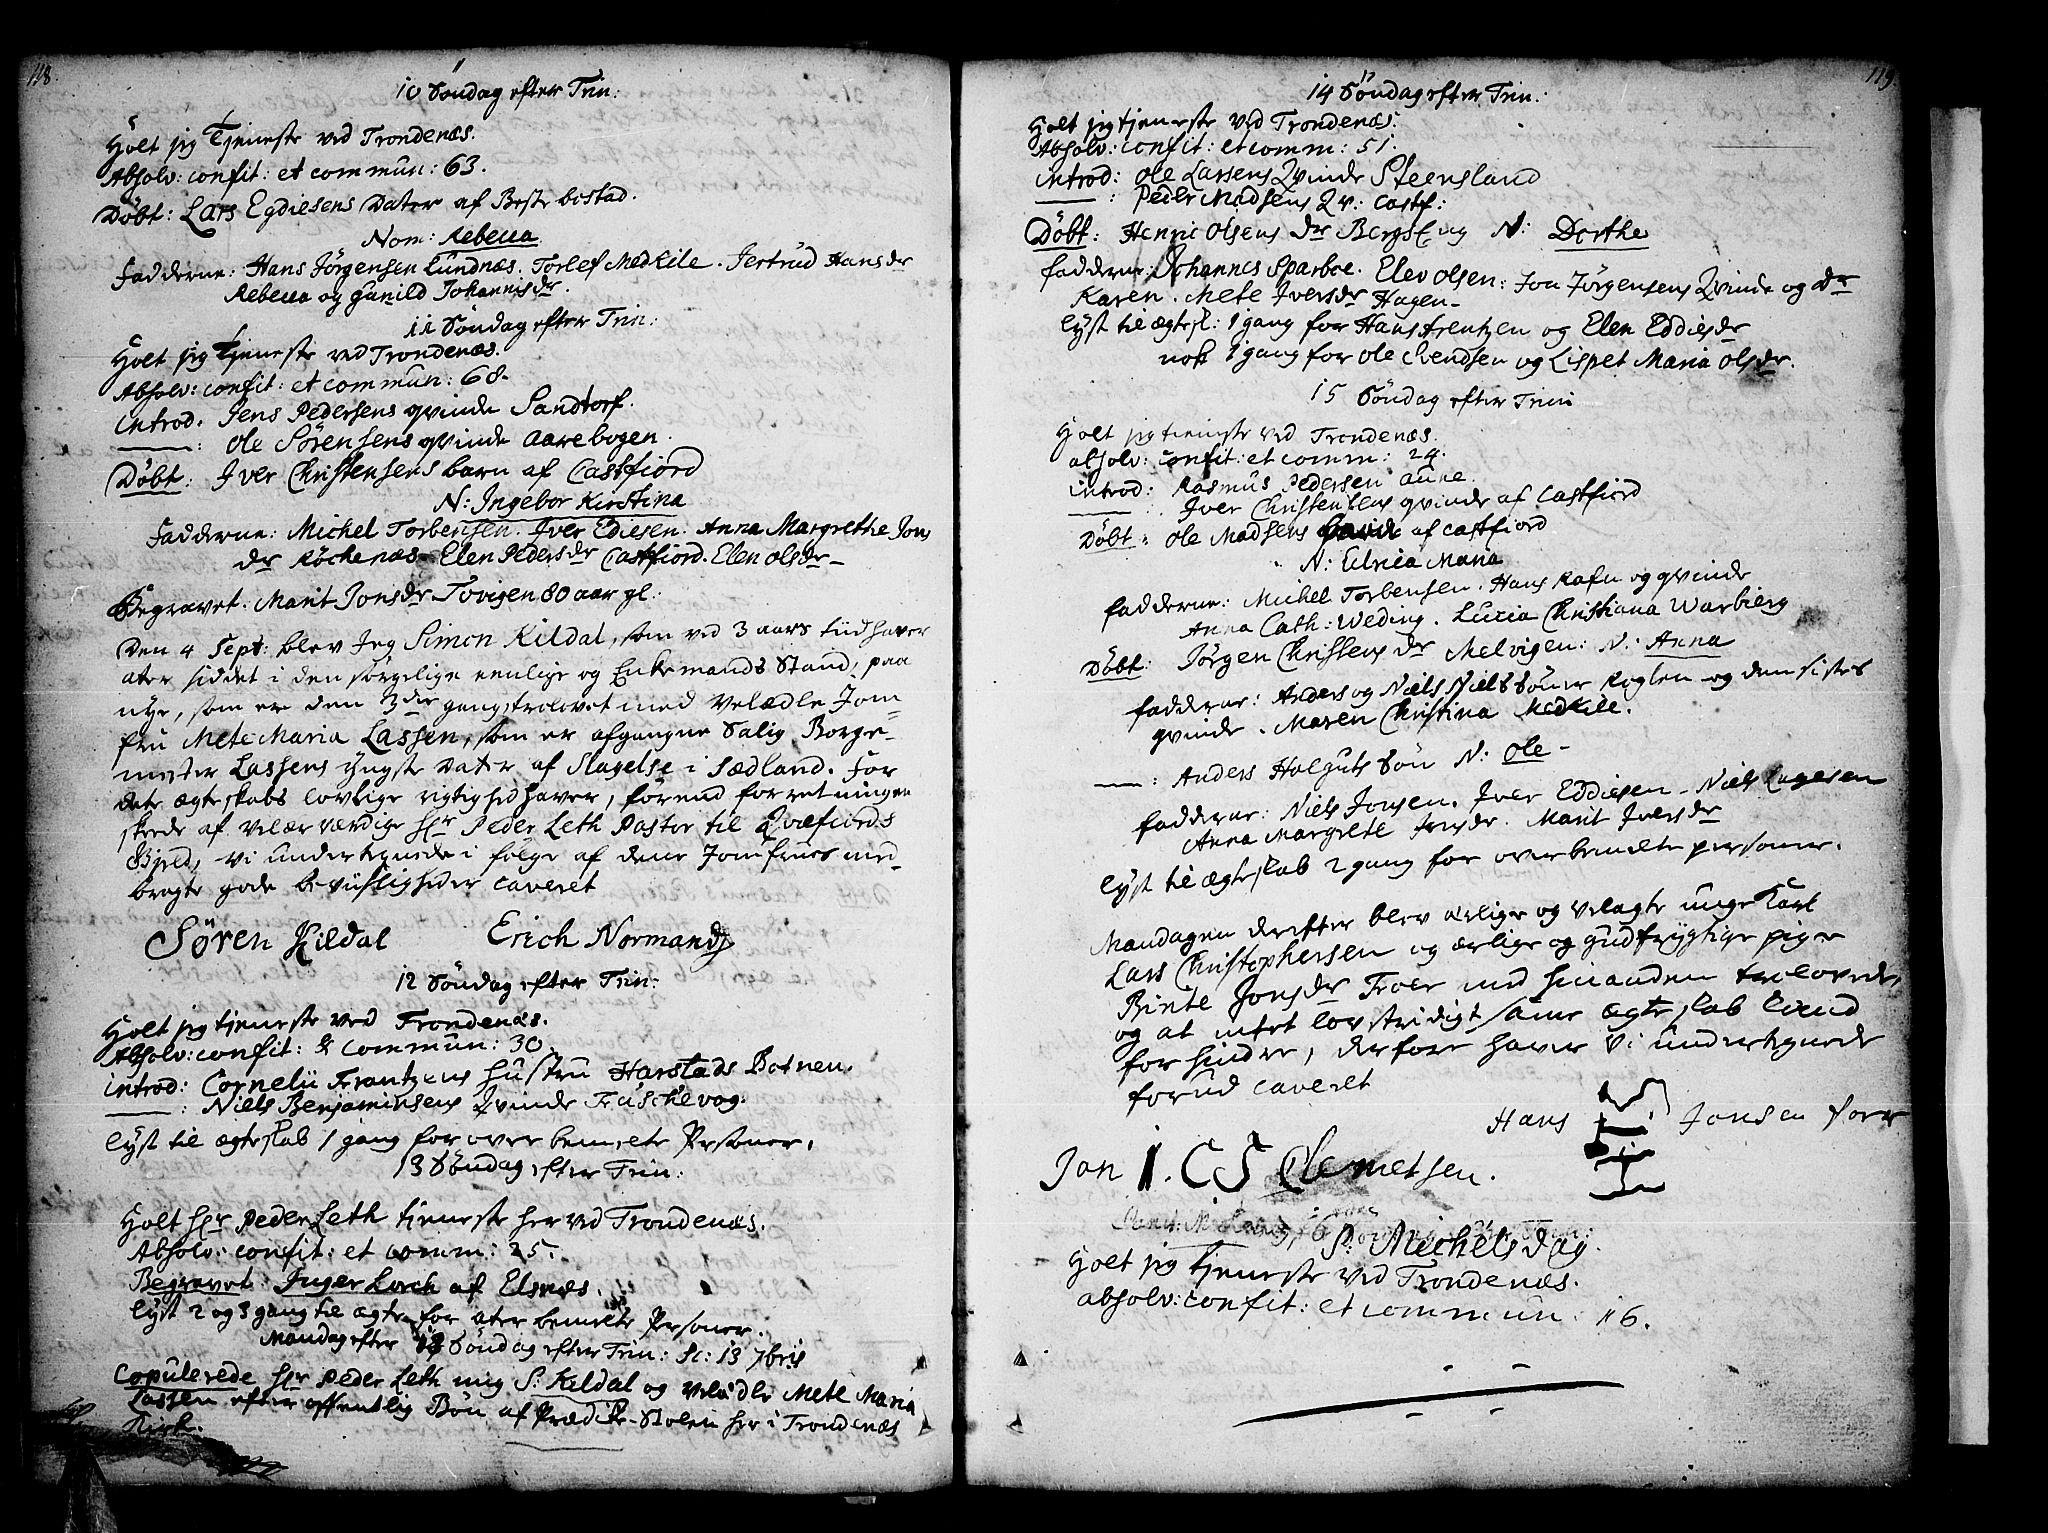 118.
10 Søndag efter Trin:
Holt jeg Tjeneste ved Trondenæs.
Absolv: confit: et commun: 63.
Døbt: Lars Egdiesens Dater af Beste bostad.
Nom: Rebecca
Fadderne: Hans Jørgensen Lundnæs. Torlef Medkile. Jertrud Hans dr
Rebecca og Gunild Johannisdr.
11 Søndag efter Trin:
Holt jeg Tjeneste ved Trondenæs.
Absolv: confit: et commun: 68.
Introd. Jens Pedersens qvinde Sandtorf.
: Ole Sørensens qvinde Aarebogen.
Døbt: Iver Christensens barn af Castfiord
N: Ingebor Kirstina
Fadderne: Michel Torbensen. Iver Ediesen. Anna Margrethe Jons
dr Røckenæs. Elen Pedersdr Castfiord. Elen Olsdr
Begravet. Marit Jonsdr Tovigen 80 aar gl.
Den 4 Sept: blev Jeg Simon Kildal, som ved 3 aars tiid haver
ater siddet i den sørgelige eenlige og Enkemands Stand, paa
nye, som er den 3die gang, trolovet med Velædle Jom=
fru Mete Maria Lassen, som er afgangne Salig Borge-
mester Lassens yngste Dater af Slagelse i Sædland. For
dete ægteskabs lovlige rigtighed haver, førend forretningen
skeede af Velærværdige Hr Peder Leth Pastor til Qvæfiords
Gjeld, vi undertegnede i følge af dene Jomfrues med-
bragte gode bevüsligheder caveret
Søren Kildal Erich Normand
12 Søndag efter Trin:
Holt jeg tjeneste ved Trondenæs.
Absolv: confit: & commun: 30.
introd: Cornelii Frantzens Hustru Harstads Botnen.
: Niels Benjaminsens Qvinde Fuskevog.
lyst til ægteskab 1 gang for over bemelte Personer.
13 Søndag efter Trin:
Holt Hr Peder Leth tjeneste her ved Trondenæs.
Absolv: confit: et comm: 25.
Begravet: Inger Lorch af Elsnæs.
lyst 2 og 3 gang til ægte for ater bemelte Personer.
Mandag efter 13 Søndag efter Trin: Sc: 13 7bris
Copulerede Hr Peder Leth mig S: Kildal og Velædle Mete Maria
Lassen efter offentlig Bøn af Prædike-Stolen her i Trondenæs
Kirke.
119.
14 Søndag efter Trin:
Holt jeg tjeneste ved Trondenæs.
Absolv: confit: et comm: 51.
introd: Ole Larsens Qvinde Steensland
: Peder Madsens Qv: Castf:
Døbt: Henric Olsens dr Bergs Eng N: Dorthe
fadderne: Johannes Sparboe. Elev Olsen: Jon Jørgensens Qvinde og dr
Karen. Mete Iversdr Hagen
lyst til ægtesk: 1 gang for Hans Arentzen og Elen Eddiesdr
nok 1 gang for Ole Svendsen og Lispet Maria Olsdr.
15 Søndag efter Trin
Holt jeg tieneste ved Trondenæs.
absolv: confit: et comm: 24.
introd: Rasmus Pedersen Aune.
: Iver Christensens qvinde af Castfiord
Døbt: Ole Madsens af Castfiord
N: Elrica Maria
fadderne: Michel Torbensen. Hans Rafn og qvinde
Anna Cath: Weding. Lucia Christiana Warbierg
Døbt: Jørgen Christens dr Melvigen: N: Anna
fadderne: Anders og Niels Niels Sønner Roglen og den sistes
qvinde. Maren Christina Medkile.
: Anders Holguts Søn N: Ole
fadderne: Niels Jonsen. Iver Eddiesen. Niels Lagesen
Anna Margrete Jensdr. Marit Iversdr
lyst til ægteskab 2 gang for over bemelte personer.
Mandagen derefter blev ærlige og velagte unge Karl
Lars Christophersen og ærlige og gudfrygtige pige
Birite Jonsdr Froer med hinanden trolovede,
og at intet lovstridigt same ægteskab kand
forhindre, derfore haver vi underteignede
forud caveret
Hans Jonsen Froer
Jon I. CS Clemetsen.
St: Michels Dag.
Holt jeg tjeneste ved Trondenæs.
absolv: confit: et commun: 16.